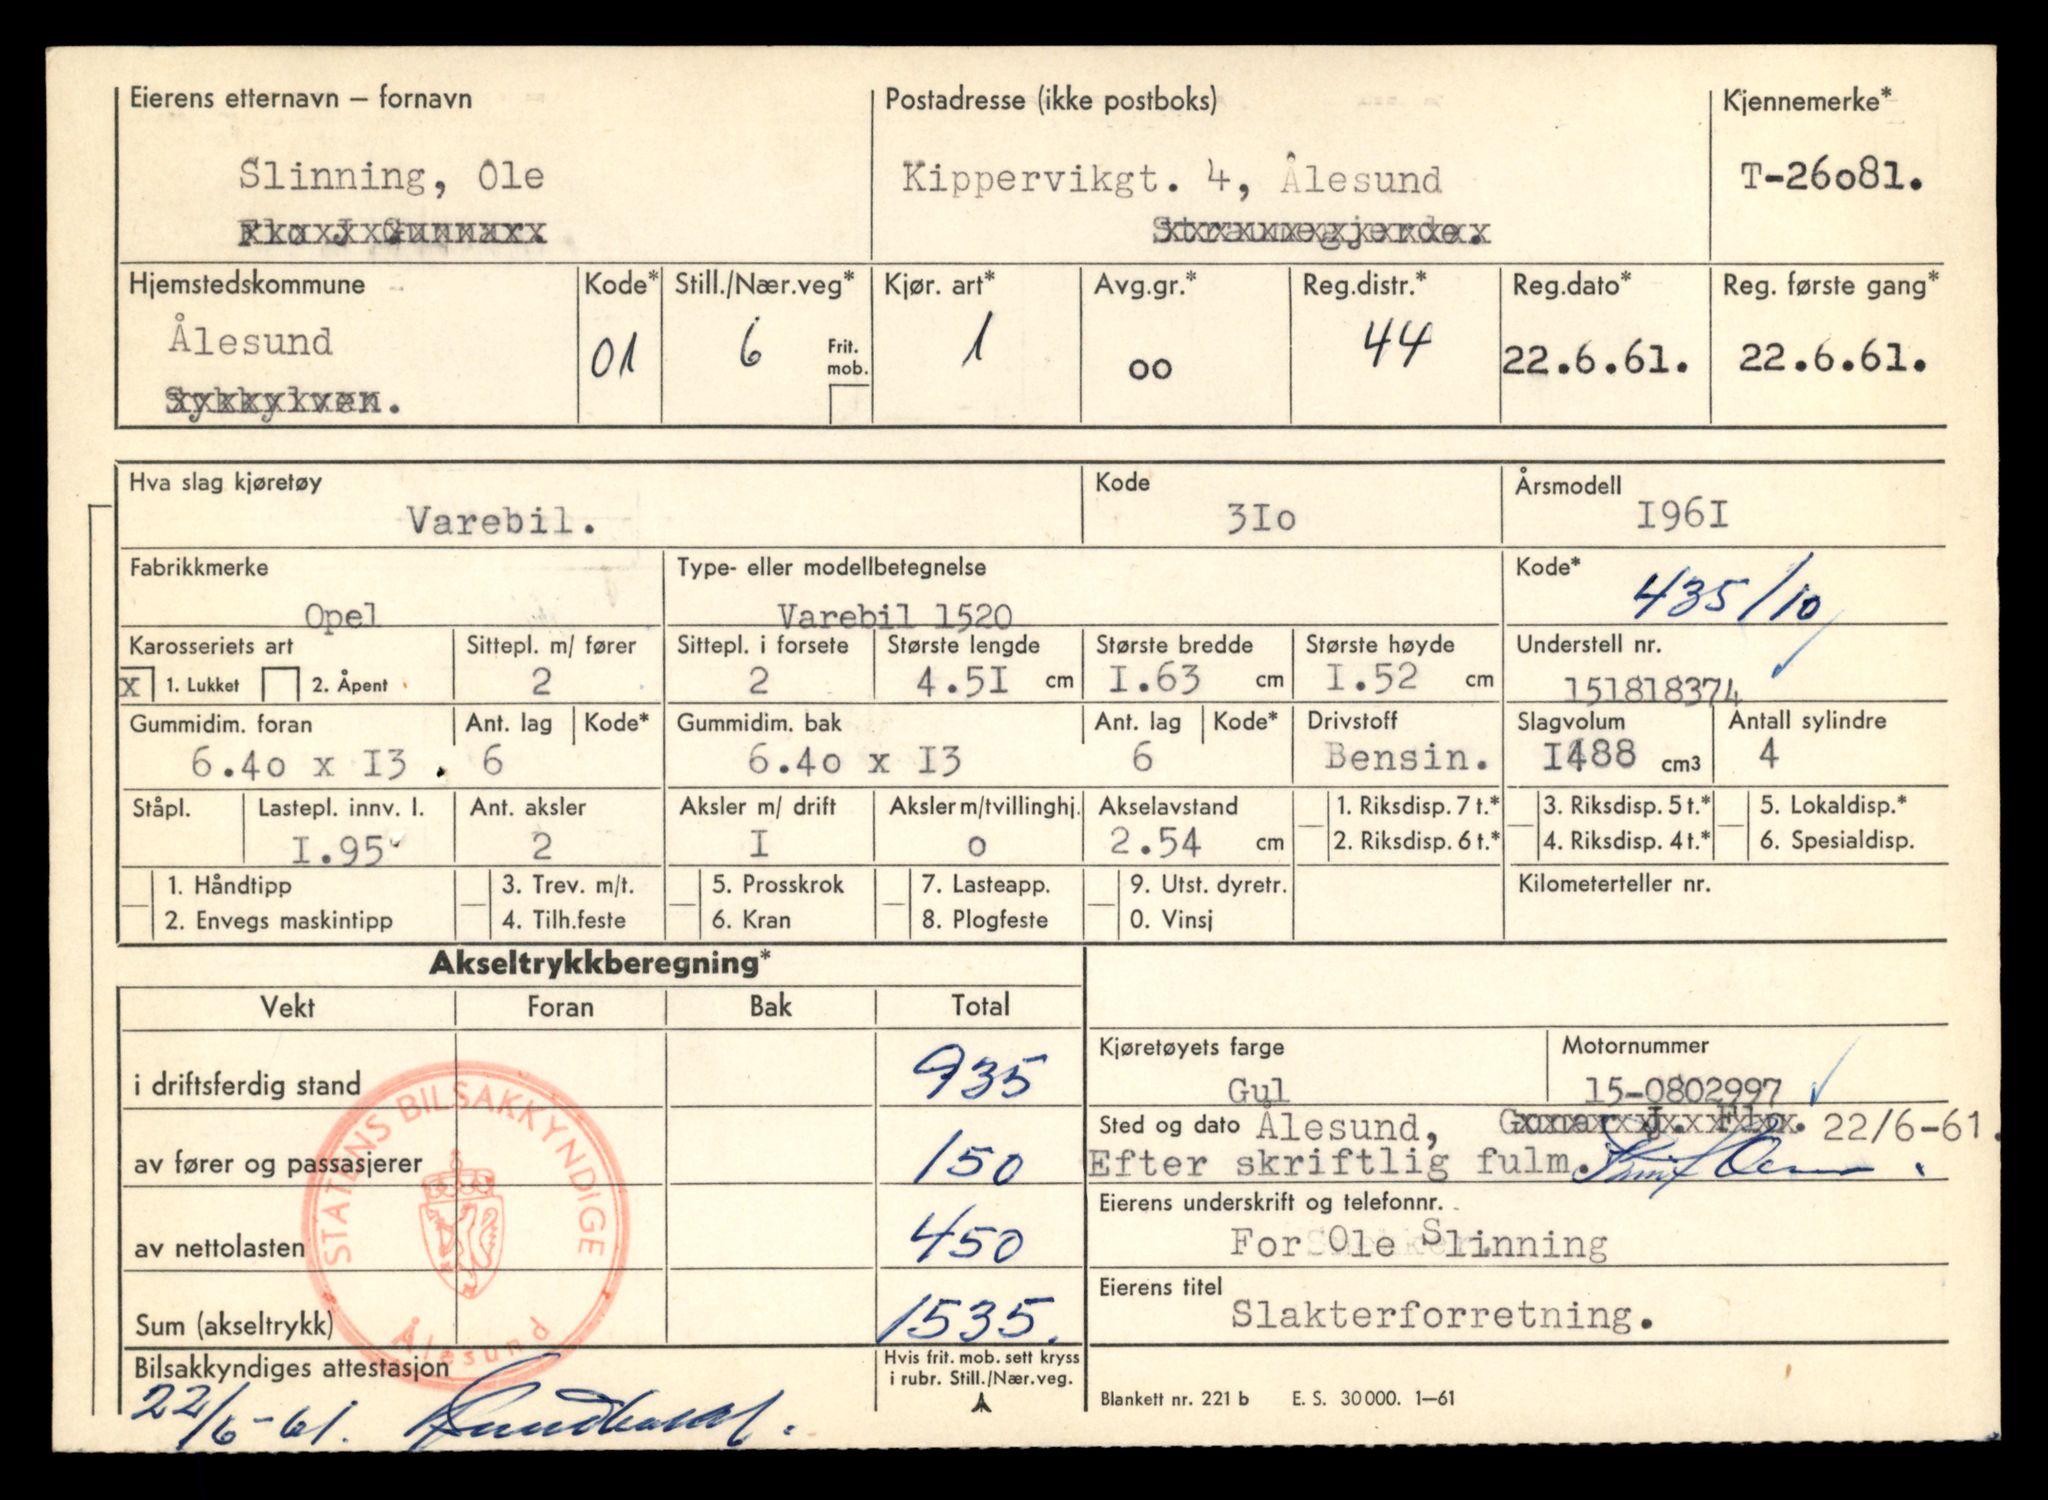 Eierens etternavn – fornavn
Postadresse (ikke postboks)
Kjennemerke*
Slinning, Ole
Kippervikgt. 4, Ålesund
T-26o81.
Flo J Gunnar.
Straumegjerde.
Hjemstedskommune
Kode*
Still./Nær.veg*
Kjør. art*
Avg.gr.*
Reg.distr.*
Reg.dato*
Reg. første gang*
Ålesund
01
6
Frit. mob.
1
oo
44
22.6.61.
22.6.61.
Sykkylven.
Hva slag kjøretøy
Kode
Årsmodell
Varebil.
3Io
I96I
Fabrikkmerke
Type- eller modellbetegnelse
Kode*
Opel
Varebil 1520
435/10
Karosseriets art
Sittepl. m/ fører
Sittepl. i forsete
Største lengde
Største bredde
Største høyde
Understell nr.
x 1. Lukket 2. Åpent
2
2
4.5I cm
I.63 cm
I.52 cm
151818374
Gummidim. foran
Ant. lag
Kode*
Gummidim. bak
Ant. lag
Kode*
Drivstoff
Slagvolum
Antall sylindre
6.4o x I3.
6
6.4o x I3
6
Bensin.
I488 cm3
4
Ståpl.
Lastepl. innv. l.
Ant. aksler
Aksler m/ drift
Aksler m/tvillinghj.
Akselavstand
1. Riksdisp. 7 t.*
3. Riksdisp. 5 t.*
5. Lokaldisp.*
I.95
2
I
o
2.54 cm
2. Riksdisp. 6 t.*
4. Riksdisp. 4 t.*
6. Spesialdisp.
1. Håndtipp
3. Trev. m/t.
5. Prosskrok
7. Lasteapp.
9. Utst. dyretr.
Kilometerteller nr.
2. Envegs maskintipp
4. Tilh.feste
6. Kran
8. Plogfeste
0. Vinsj
Akseltrykkberegning*
Vekt
Foran
Bak
Total
i driftsferdig stand
935
av fører og passasjerer
150
av nettolasten
450
Sum (akseltrykk)
1535.
STATENS BILSAKKYNDIGE
Ålesund
Bilsakkyndiges attestasjon
Hvis frit. mob. sett kryss
i rubr. Still./Nær.veg.
22/6-61.
Kjøretøyets farge
Motornummer
Gul
15-0802997
Sted og dato Ålesund, Gunnar J. Flo. 22/6-61.
Efter skriftlig fulm.
Eierens underskrift og telefonnr.
For Ole Slinning
Eierens titel
Slakterforretning.
Blankett nr. 221 b E. S. 30000. 1–61